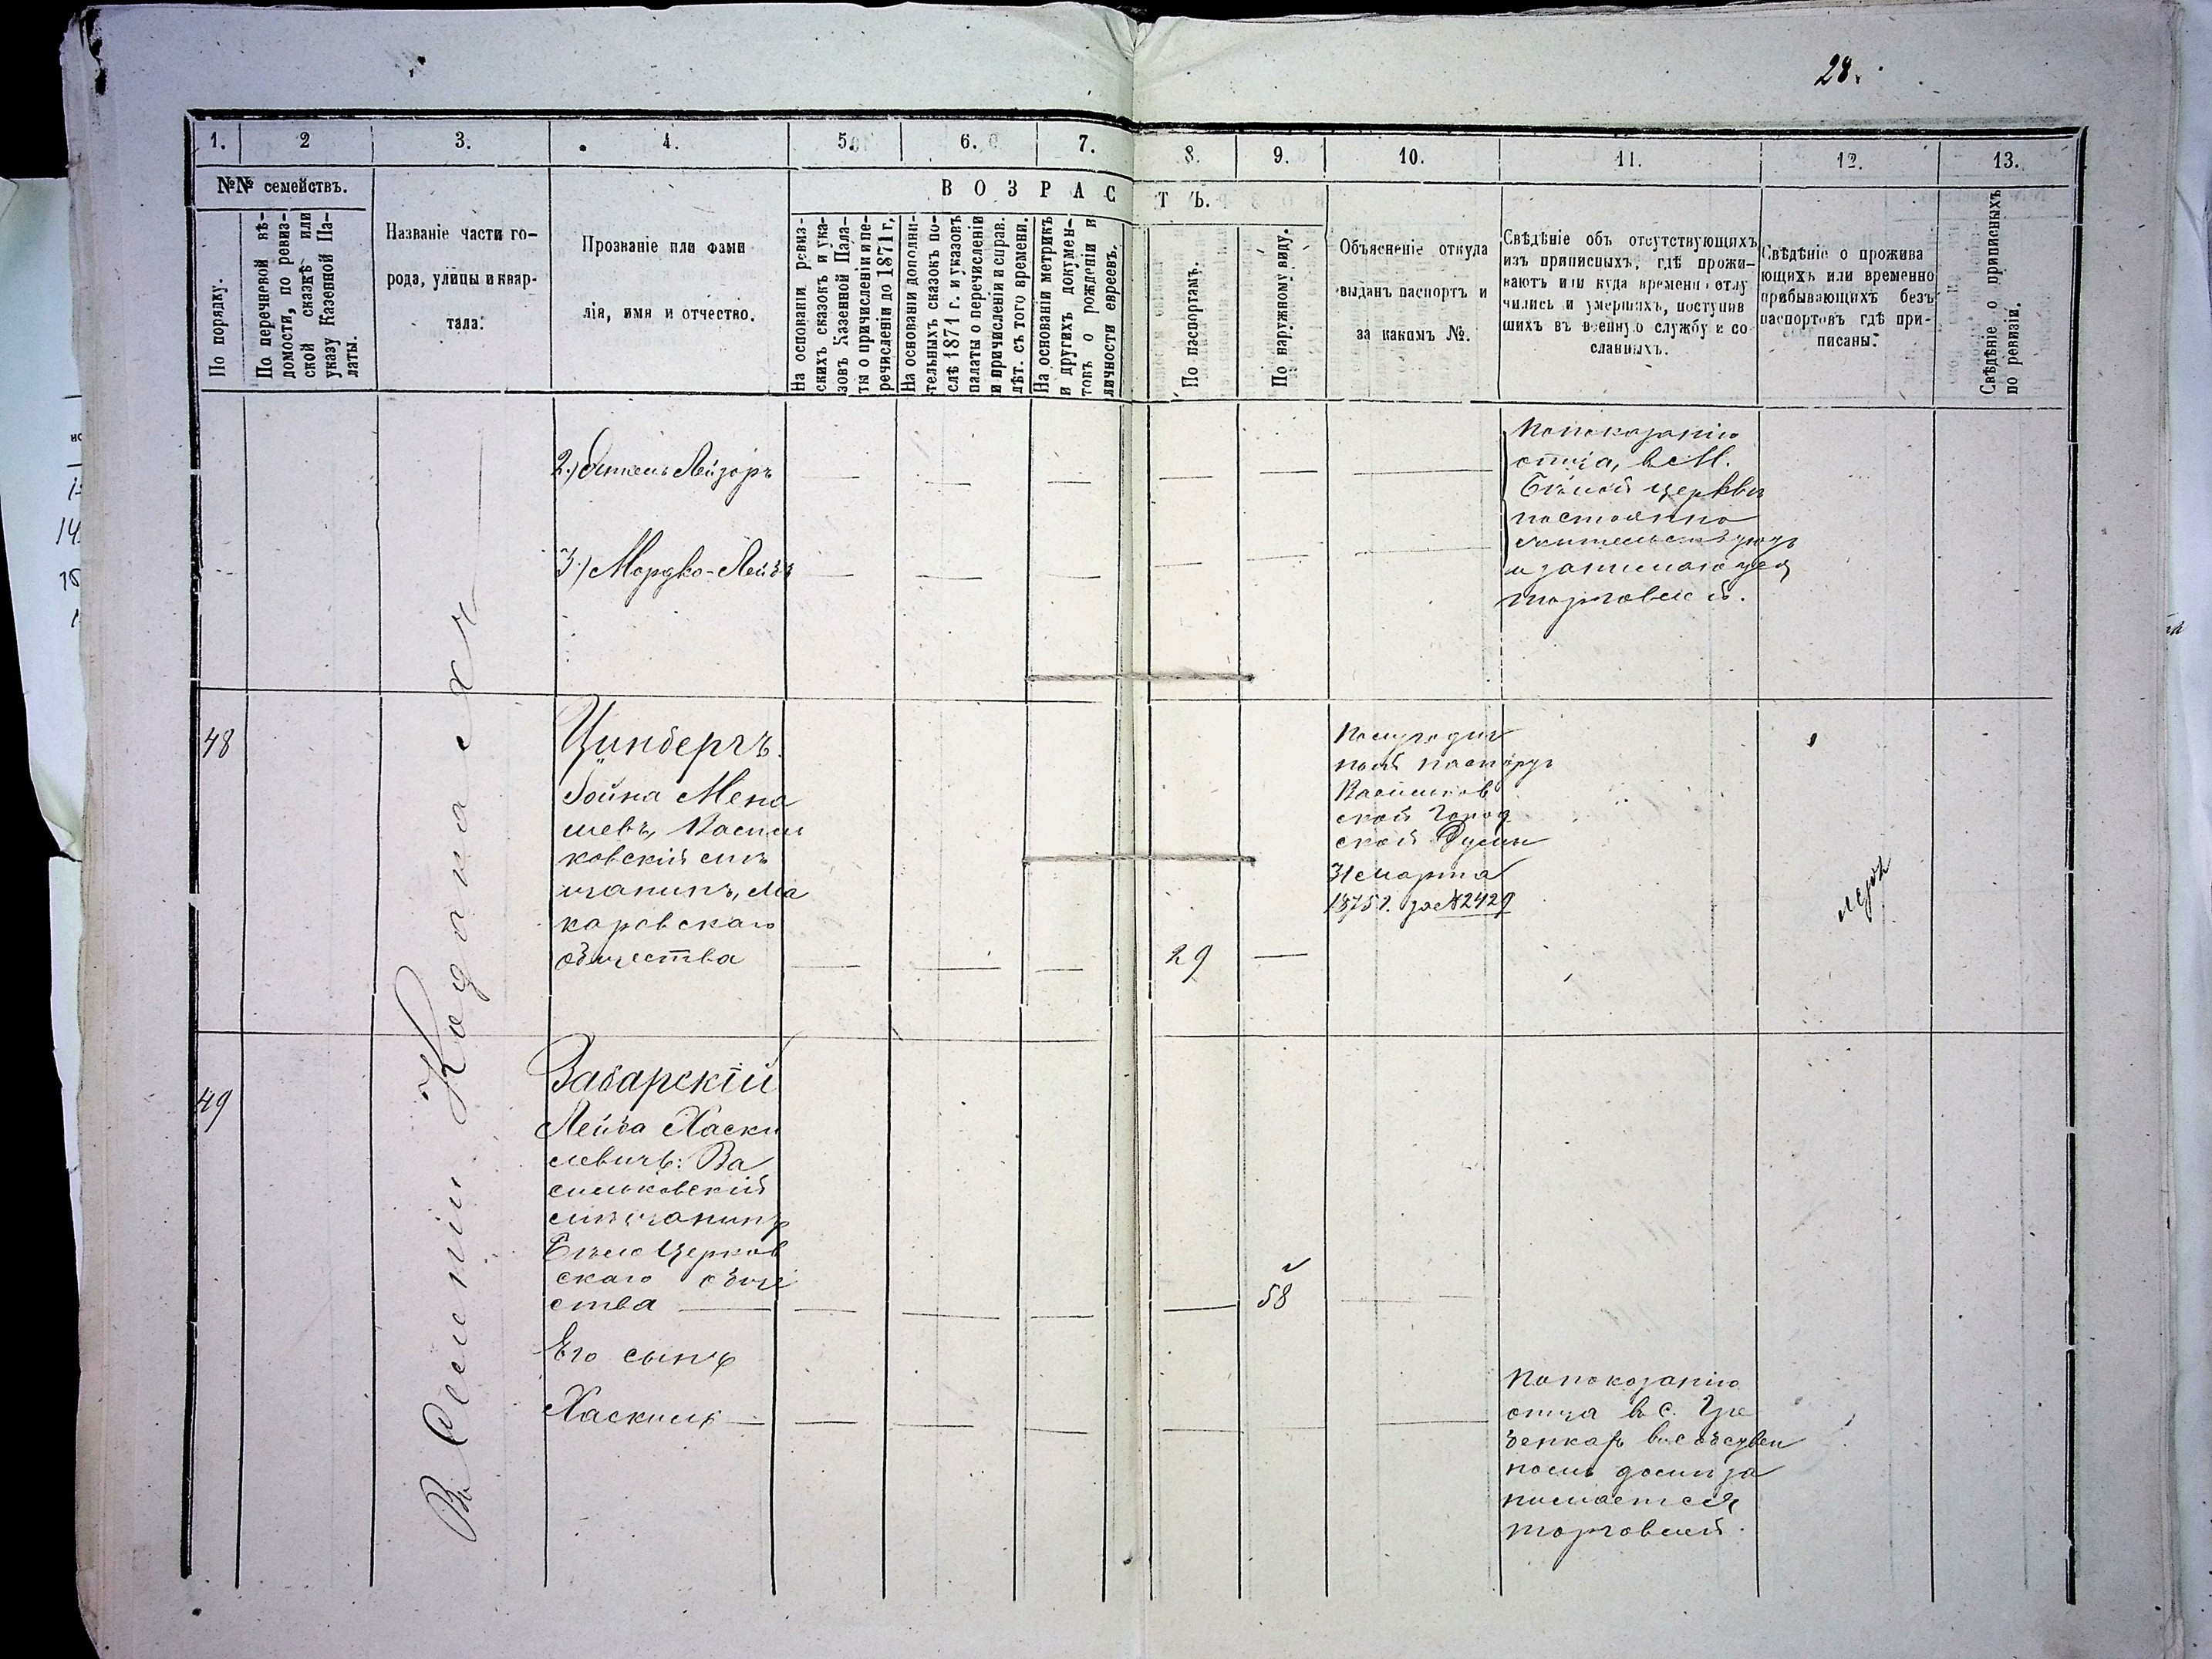 28.
1.
2
3.
4.
5.
6.
7.
8.
9.
10.
11.
12.
13.
№№ семействъ.
По порядку.
По перечневой вѣ-
домости, по ревиз-
ской сказкѣ или
указу Казенной Па-
латы.
Названіе части го-
рода, улицы и квар-
тала.
Прозваніе или фами
лія, имя и отчество.
ВОЗРАСТЪ.
На основаніи ревиз-
скихъ сказокъ и ука-
зовъ Казенной Пала-
ты о причисленіи и пе-
речисленіи до 1871 г,
На основаніи дополни-
тельныхъ сказокъ по-
слѣ 1871 г. и указовъ
палаты о перечисленіи
и причисленіи и справ.
лѣт. съ того времени.
На основаніи метрикъ
и другихъ докумен-
товъ о рожденіи и
личности евреевъ.
По паспортамъ.
По наружному виду.
Объясненіе откуда
выданъ паспортъ и
за какимъ №.
Свѣдѣніе объ отсутствующихъ
изъ приписныхъ, гдѣ прожи-
ваютъ или куда времени отлу
чились и умершихъ, поступив
шихъ въ военную службу и со
сланныхъ.
Свѣдѣніе о прожива
ющихъ или временно
прибывающихъ безъ
паспортовъ гдѣ при-
писаны.
Свѣдѣніе о приписныхъ
по ревизіи.
2.) Лейзоръ
По показанію
отца, в М.
Бѣлой церкви
постоянно
жительствуютъ
и занимаются
торговлей.
3.) Мордко-Лейбъ
48
Цинбергъ.
Гойна Мена
шевъ, Василь
ковскій мѣ
щанинъ, Ма
каровскаго
общества
29
Полугодич
ный паспортъ
Васильков
ской Город
ской Думы
31 марта
1875 г. за №2429
49
Забарскій
Лейба Хаски
левичъ: Ва
сильковскій
мѣщанинъ
Бѣлоцерков
скаго обще
ства
58
Его сынъ
Хаскилъ
По показанію
отца в с.
въ собствен
номъ домѣ за
нимается
торговлей.